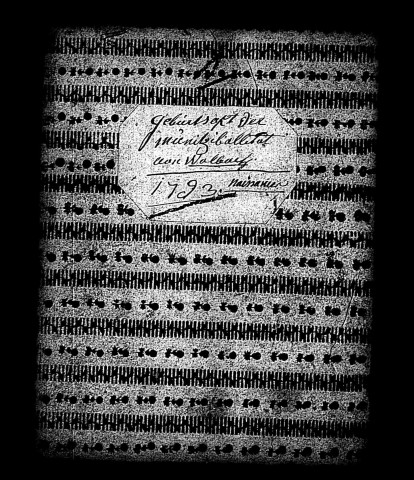 Geburtsakt der
münitziballitat
von Walbach
1793. naissances